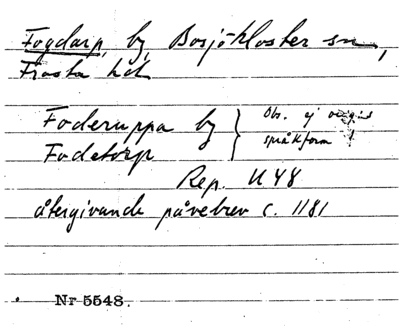 Fogdarp, by, Bosjökloster sn,
Frosta hd
Foderuppa by
Fodetorp
Obs. ej origis
språkform !
Rep. U 48
återgivande påvebrev c. 1181
Nr 5548.